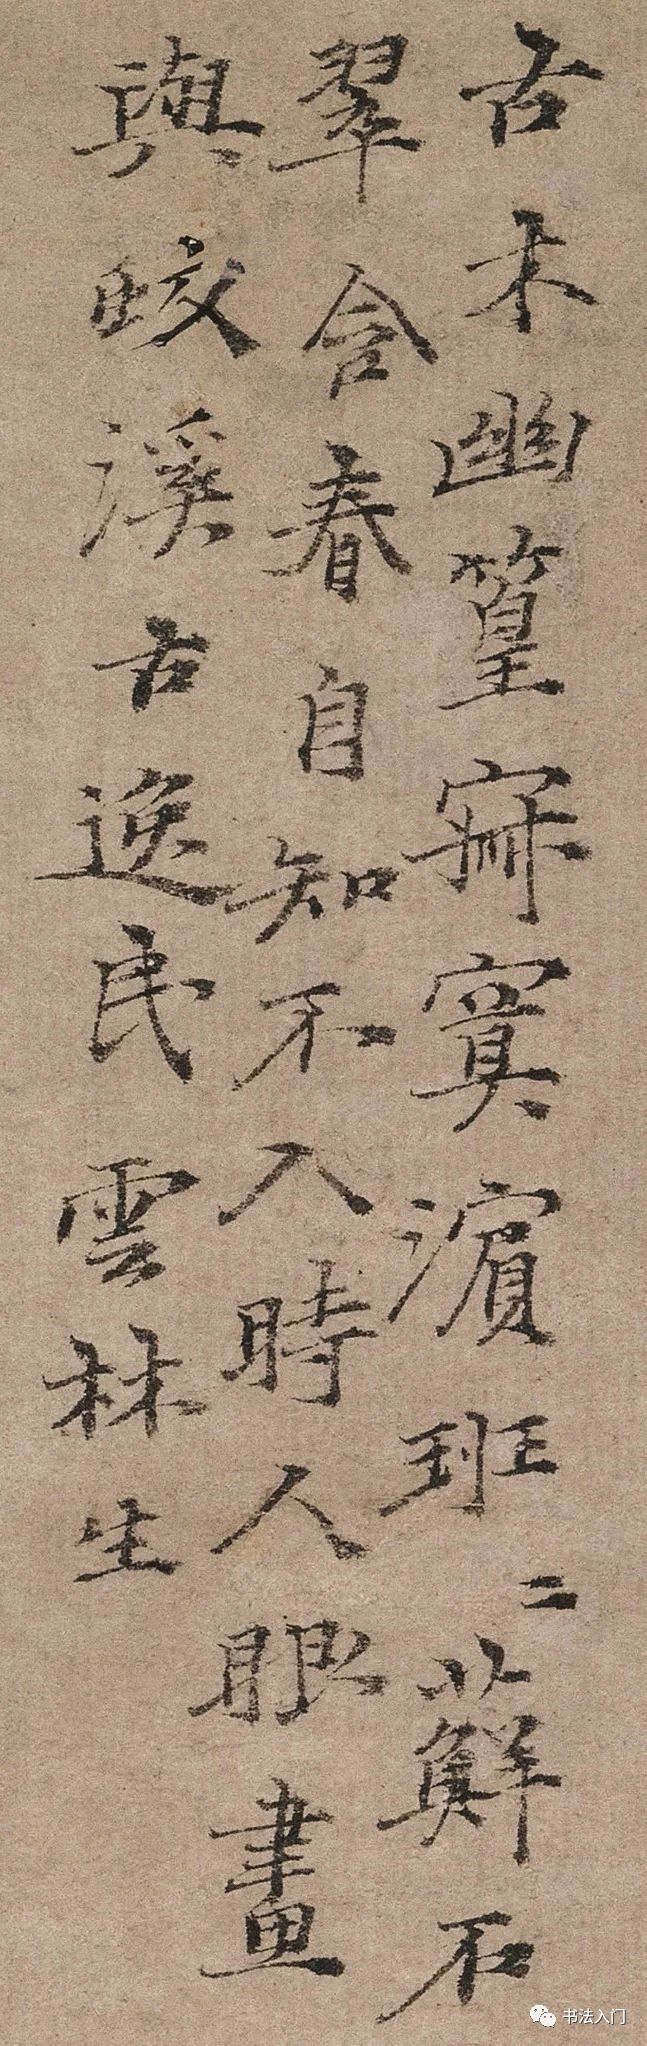 古木幽篁寂寞濱班〻蘚石
翠含春自知不入時人眼畫
與蛟溪古逸民雲林生
书法入门